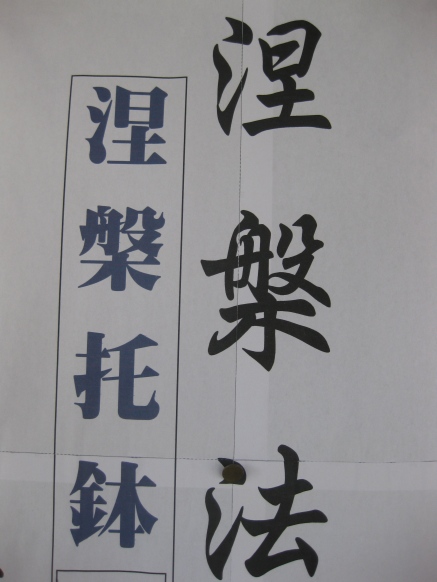 涅槃法
涅槃托鉢